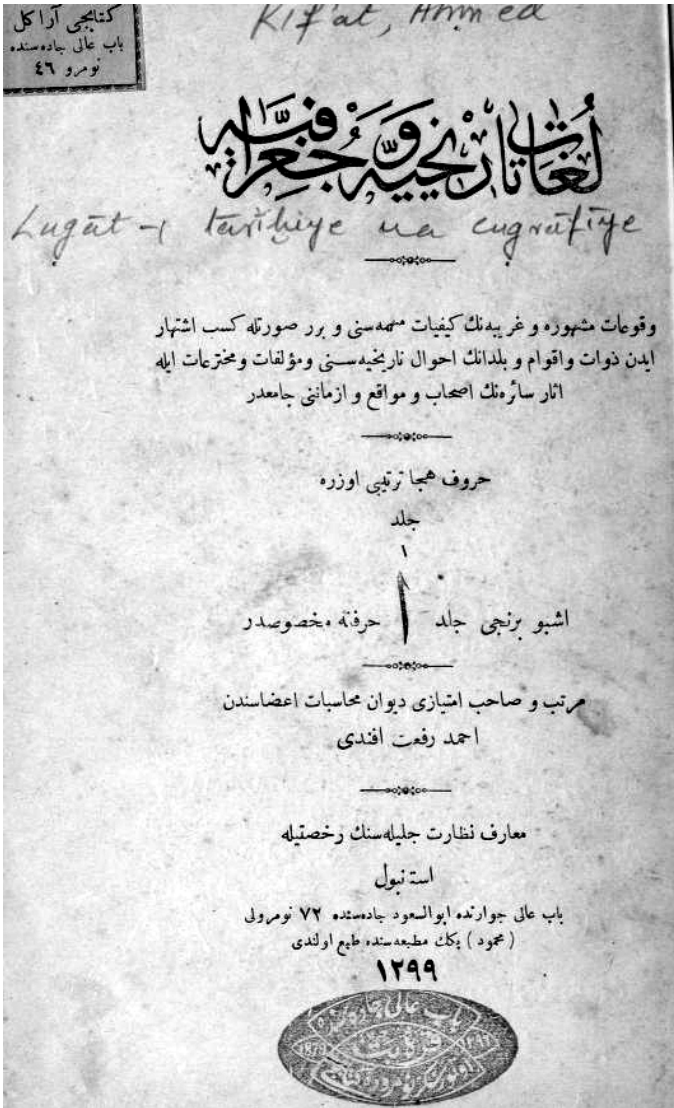 كتابجی آراكل
باب عالی جاده‌سنده
نومرو ٤٦
Rif'at, Ahmed
لُغَات تَارِيخِيَّه وَ جُغْرَافِيَّه
Lugāt-ı tarihiye va cugrāfiye
وقوعات مشهوره و غریبه‌نك كیفیات مهمه‌سنی و برر صورتله كسب اشتهار
ایدن ذوات واقوام و بلدانك احوال تاریخیه‌سنی ومؤلفات ومخترعات ایله
اثار سائره‌نك اصحاب و مواقع و ازماننی جامعدر
حروف هجا ترتیبی اوزره
جلد
١
اشبو برنجی جلد ا حرفنه مخصوصدر
مرتب و صاحب امتیازی دیوان محاسبات اعضاسندن
احمد رفعت افندی
معارف نظارت جلیله‌سنك رخصتیله
استانبول
باب عالی جوارنده ابوالسعود جاده‌سنده ٧٢ نومرولی
( محمود ) بكك مطبعه‌سنده طبع اولندی
١٢٩٩
باب عالی جاده‌سنده